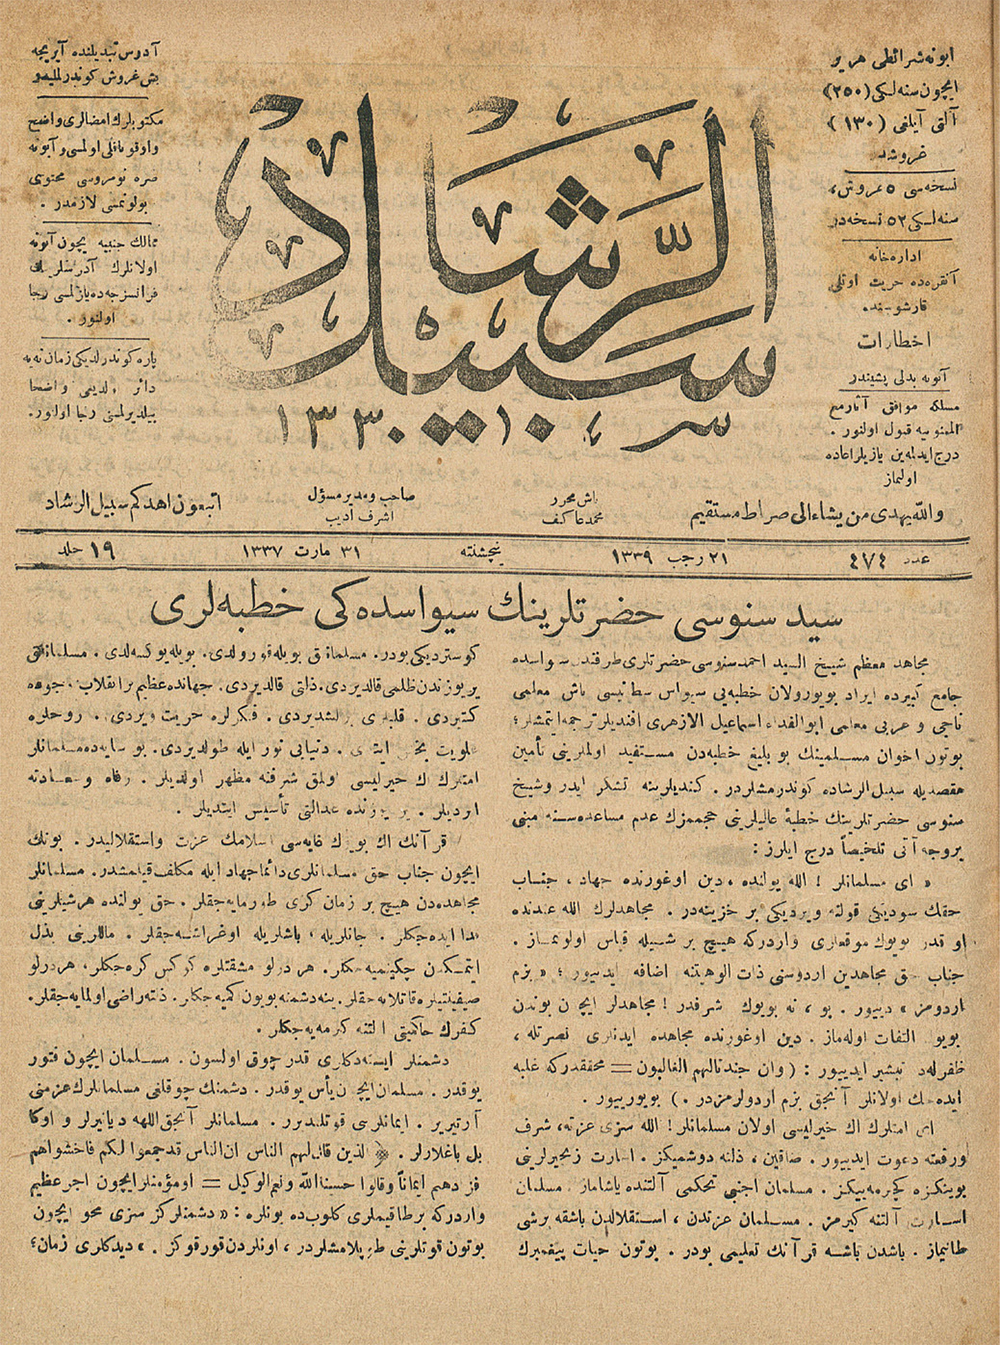 ابونه شرائطی هر یر
ایچون سنه‌لکی (٢٥٠)
آلتی آیلغی (١٣٠)
غروشدر
نسخه‌سی ٥ غروش،
سنه‌لکی ٥٢ نسخه‌در
اداره‌خانه
آنقره‌ده حریت اوتلی
قارشوسنده.
اخطارات
آبونه بدلی پشیندر
مسلكه موافق آثار مع
الممنونیه قبول اولنور.
درج ایدلمه‌ین یازیلر اعاده
اولنماز
آدرس تبدیلنده آیریجه
بش غروش كوندرلمليدر
مکتوبلرك امضالری واضح
و اوقوناقلی اولمسی و آبونه
صره نومروسی محتوی
بولونمسی لازمدر.
ممالك اجنبیه ایچون آبونه
اولانلرك آدرسلرینك
فرانسزجه‌ده یازلمسی رجا
اولنور.
پاره كوندرلدیکی زمان نه‌یه
دائر اولدیغی واضحا
بیلدیرلمسی رجا اولنور.
سبیل الرشاد
١٣٣٠
والله یهدی من یشاء الی صراط مستقیم
باش محرر
محمد عاکف
صاحب و مدیر مسؤل
اشرف ادیب
اتبعون اهدکم سبیل الرشاد
عدد ٤٧٤
٢١ رجب ١٣٣٩
پنجشنبه
٣١ مارت ١٣٣٧
جلد ١٩
سید سنوسی حضرتلرینك سیواسده‌کی خطبه‌لری
مجاهد معظم شیخ السید احمد سنوسی حضرتلری طرفندن سواسده
جامع کبیرده ایراد بویورولان خطبه‌یی سیواس سلطانیسی باش معلمی
ناجی و عربی معلمی ابوالفداء اسماعیل الازهری افندیلر ترجمه ایتمشلر؛
بوتون اخوان مسلمینك بو بلیغ خطبه‌دن مستفید اولملرینی تأمین
مقصدیله سبیل الرشاده کوندرمشلردر. کندیلرینه تشکر ایدر و شیخ
سنوسی حضرتلرینك خطبهٔ عالیلرینی حجممزك عدم مساعده‌سنه مبنی
بروجه آتی تلخیصاً درج ایلرز:
« ای مسلمانلر! الله یولنده، دین اوغورنده جهاد، جناب
حقك سودیکی قولنه ویردیکی بر خزینه‌در. مجاهدلرك الله عندنده
او قدر بویوك موقعلری واردرکه هیچ بر شیئله قیاس اولونماز.
جناب حق مجاهدین اردوسنی ذات الوهیتنه اضافه ایدییور؛ « بزم
اردومز » دییور. بو، نه بویوك شرفدر! مجاهدلر ایچون بوندن
بویوك التفات اوله‌ماز. دین اوغورنده مجاهده ایدنلری نصرتله،
ظفرله‌ده تبشیر ایدییور: (وان جندنا لهم الغالبون = محققدرکه غلبه
ایده‌جك اولانلر آنجق بزم اردولرمزدر.) بویورییور.
ای امتلرك اك خیرلیسی اولان مسلمانلر! الله سزی عزته، شرف
و رفعته دعوت ایدییور. صاقین، ذلته دوشمیکز. اسارت زنجیرلرینی
بوینکزه کچیرمه‌ییکز. مسلمان اجنبی تحکمی آلتنده یاشاماز. مسلمان
اسارت آلتنه کیرمز. مسلمان عزتدن، استقلالدن باشقه برشی
طانیماز. باشدن باشه قرآنك تعلیمی بودر. بوتون حیات پیغمبرك
کوستردیکی بودر. مسلمانلق بویله قورولدی. بویله یوکسلدی. مسلمانلق
یریوزندن ظلمی قالدیردی. ذلتی قالدیردی. جهانده عظیم بر انقلاب وجوده
کتیردی. قلبلری برلشدیردی. فکرلره حریت ویردی. روحلره
علویت بخش ایتدی. دنیایی نور ایله طولدیردی. بو سایه‌ده مسلمانلر
امتلرك اك خیرلیسی اولمق شرفنه مظهر اولدیلر. رفاه و سعادته
ایردیلر. یر یوزنده عدالتی تأسیس ایتدیلر.
قرآنك اك بویوك غایه‌سی اسلامك عزت و استقلالیدر. بونك
ایچون جناب حق مسلمانلری دائما جهاد ایله مکلف قیلمشدر. مسلمانلر
مجاهده‌دن هیچ بر زمان کری طورمایه‌جقلر. حق یولنده هرشیلرینی
فدا ایده‌جکلر. جانلریله، باشلریله اوغراشه‌جقلر. ماللرینی بذل
ایتمکدن چکینمیه‌جکلر. هر درلو مشقتلره کوکس کره‌جکلر، هر درلو
صیقینتیلره قاتلانه‌جقلر. ینه دشمنه بویون اکمیه‌جکلر. ذلته راضی اولمایه‌جقلر.
کفرك حاکمیتی آلتنه کیرمه‌یه‌جکلر.
دشمنلر ایسته‌دکلری قدر چوق اولسون. مسلمان ایچون فتور
یوقدر. مسلمان ایچون یأس یوقدر. دشمنك چوقلغی مسلمانلرك عزمنی
آرتیریر. ایمانلرینی قوتلندیرر. مسلمانلر آنجق اللهه دیانیرلر و اوکا
بل باغلارلر. ﴿الذین قال لهم الناس ان الناس قد جمعوا لکم فاخشوهم
فزادهم ایماناً و قالوا حسبنا الله و نعم الوکیل = او مؤمنلر ایچون اجر عظیم
واردرکه برطاقیملری کلوب‌ده بونلره: « دشمنلرکز سزی محو ایچون
بوتون قوتلرینی طوپلامشلردر، اونلردن قورقوکز. » دیدکلری زمان؛